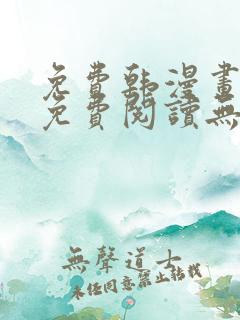 免費韓漫畫
免費閱讀無
無聲道士
未任同意禁止訪載